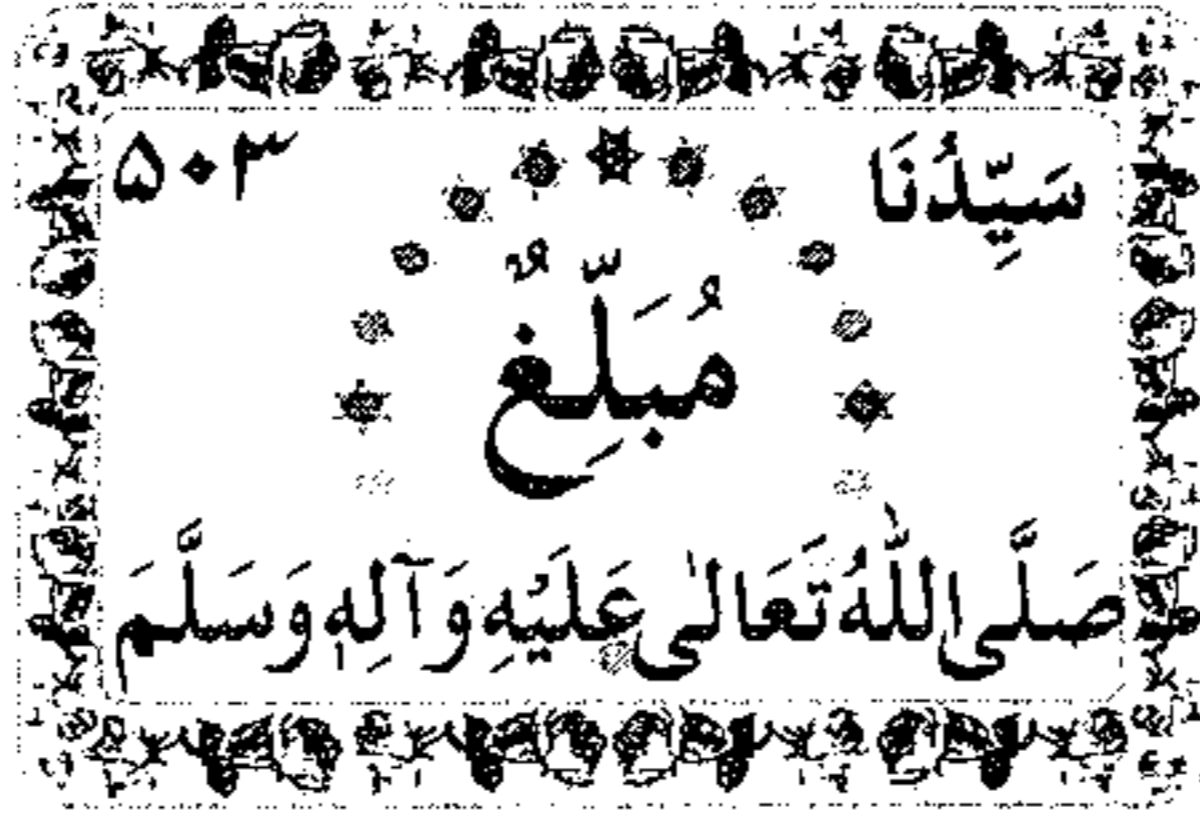 سَيِّدُنَا ۵۰۳
مُبَلِّغٌ
صَلَّی اللّٰهُ تَعَالٰی عَلَيْهِ وَآلِهٖ وَسَلَّمَ